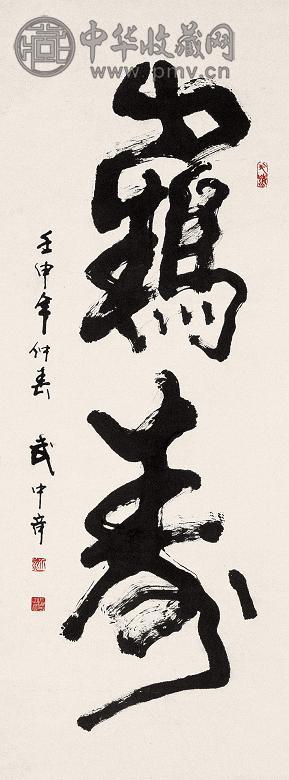 中华收藏网
www.pmv.cn
鶴寿
壬申年仲春 武中奇